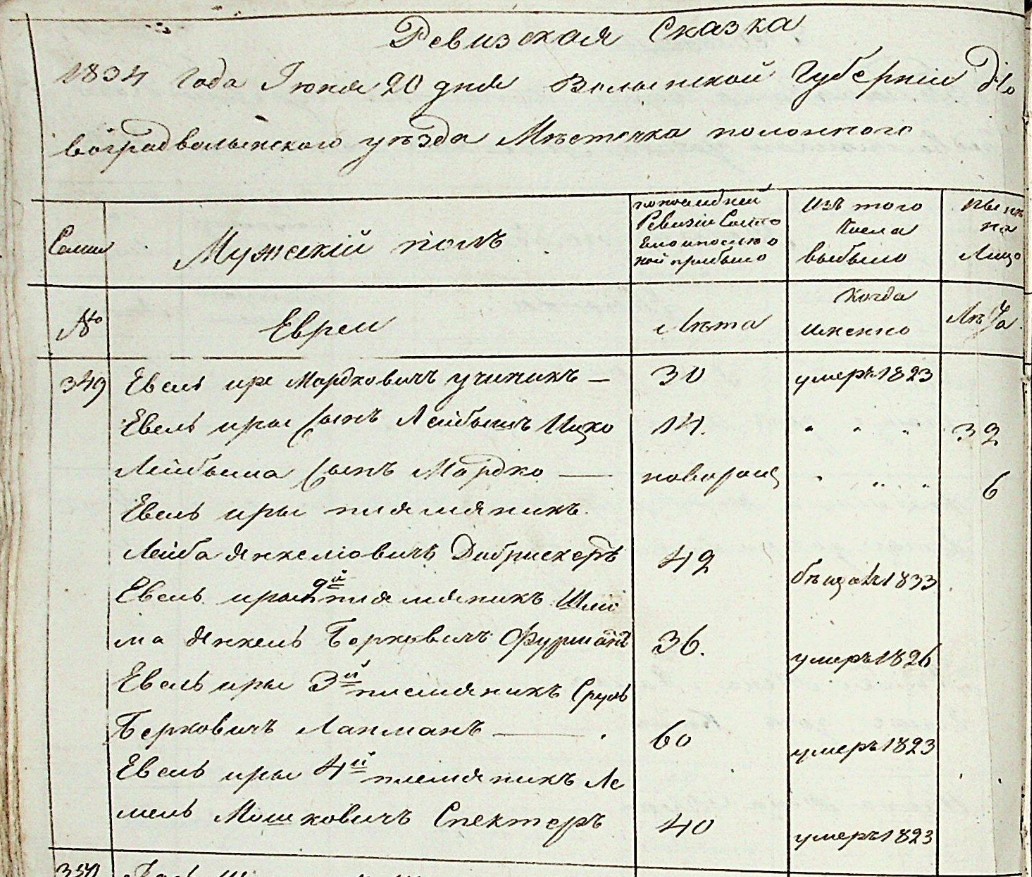 Ревизская Сказка
1834 года Июня 20 дня Волынской Губернии Но
воградволынского уезда Местечка полонного
Семьи Мужский полъ по последней Ревизіи Состо яло и после о ной прибыло Изъ того Числа выбыло Ныне на Лицо
№ Евреи Лета Когда именно Лета
349 Евель Мордковичъ 30 умеръ 1823
Евель Сынъ Ицко 14. " " " 32
Сынъ Мордко — новорощ " " " 6
Евель племяникъ
Лейба Янкелювичъ 42 1833
Евель 2й племяникъ Шлии
ма Янкель Берковичъ Фурманъ 36. умеръ 1826
Евель 3й племяникъ Сруль
Берковичъ Лахманъ — 60 умеръ 1823
Евель 4й племяникъ Ле
мель Мошковичъ Спекторъ 40 умеръ 1823
350